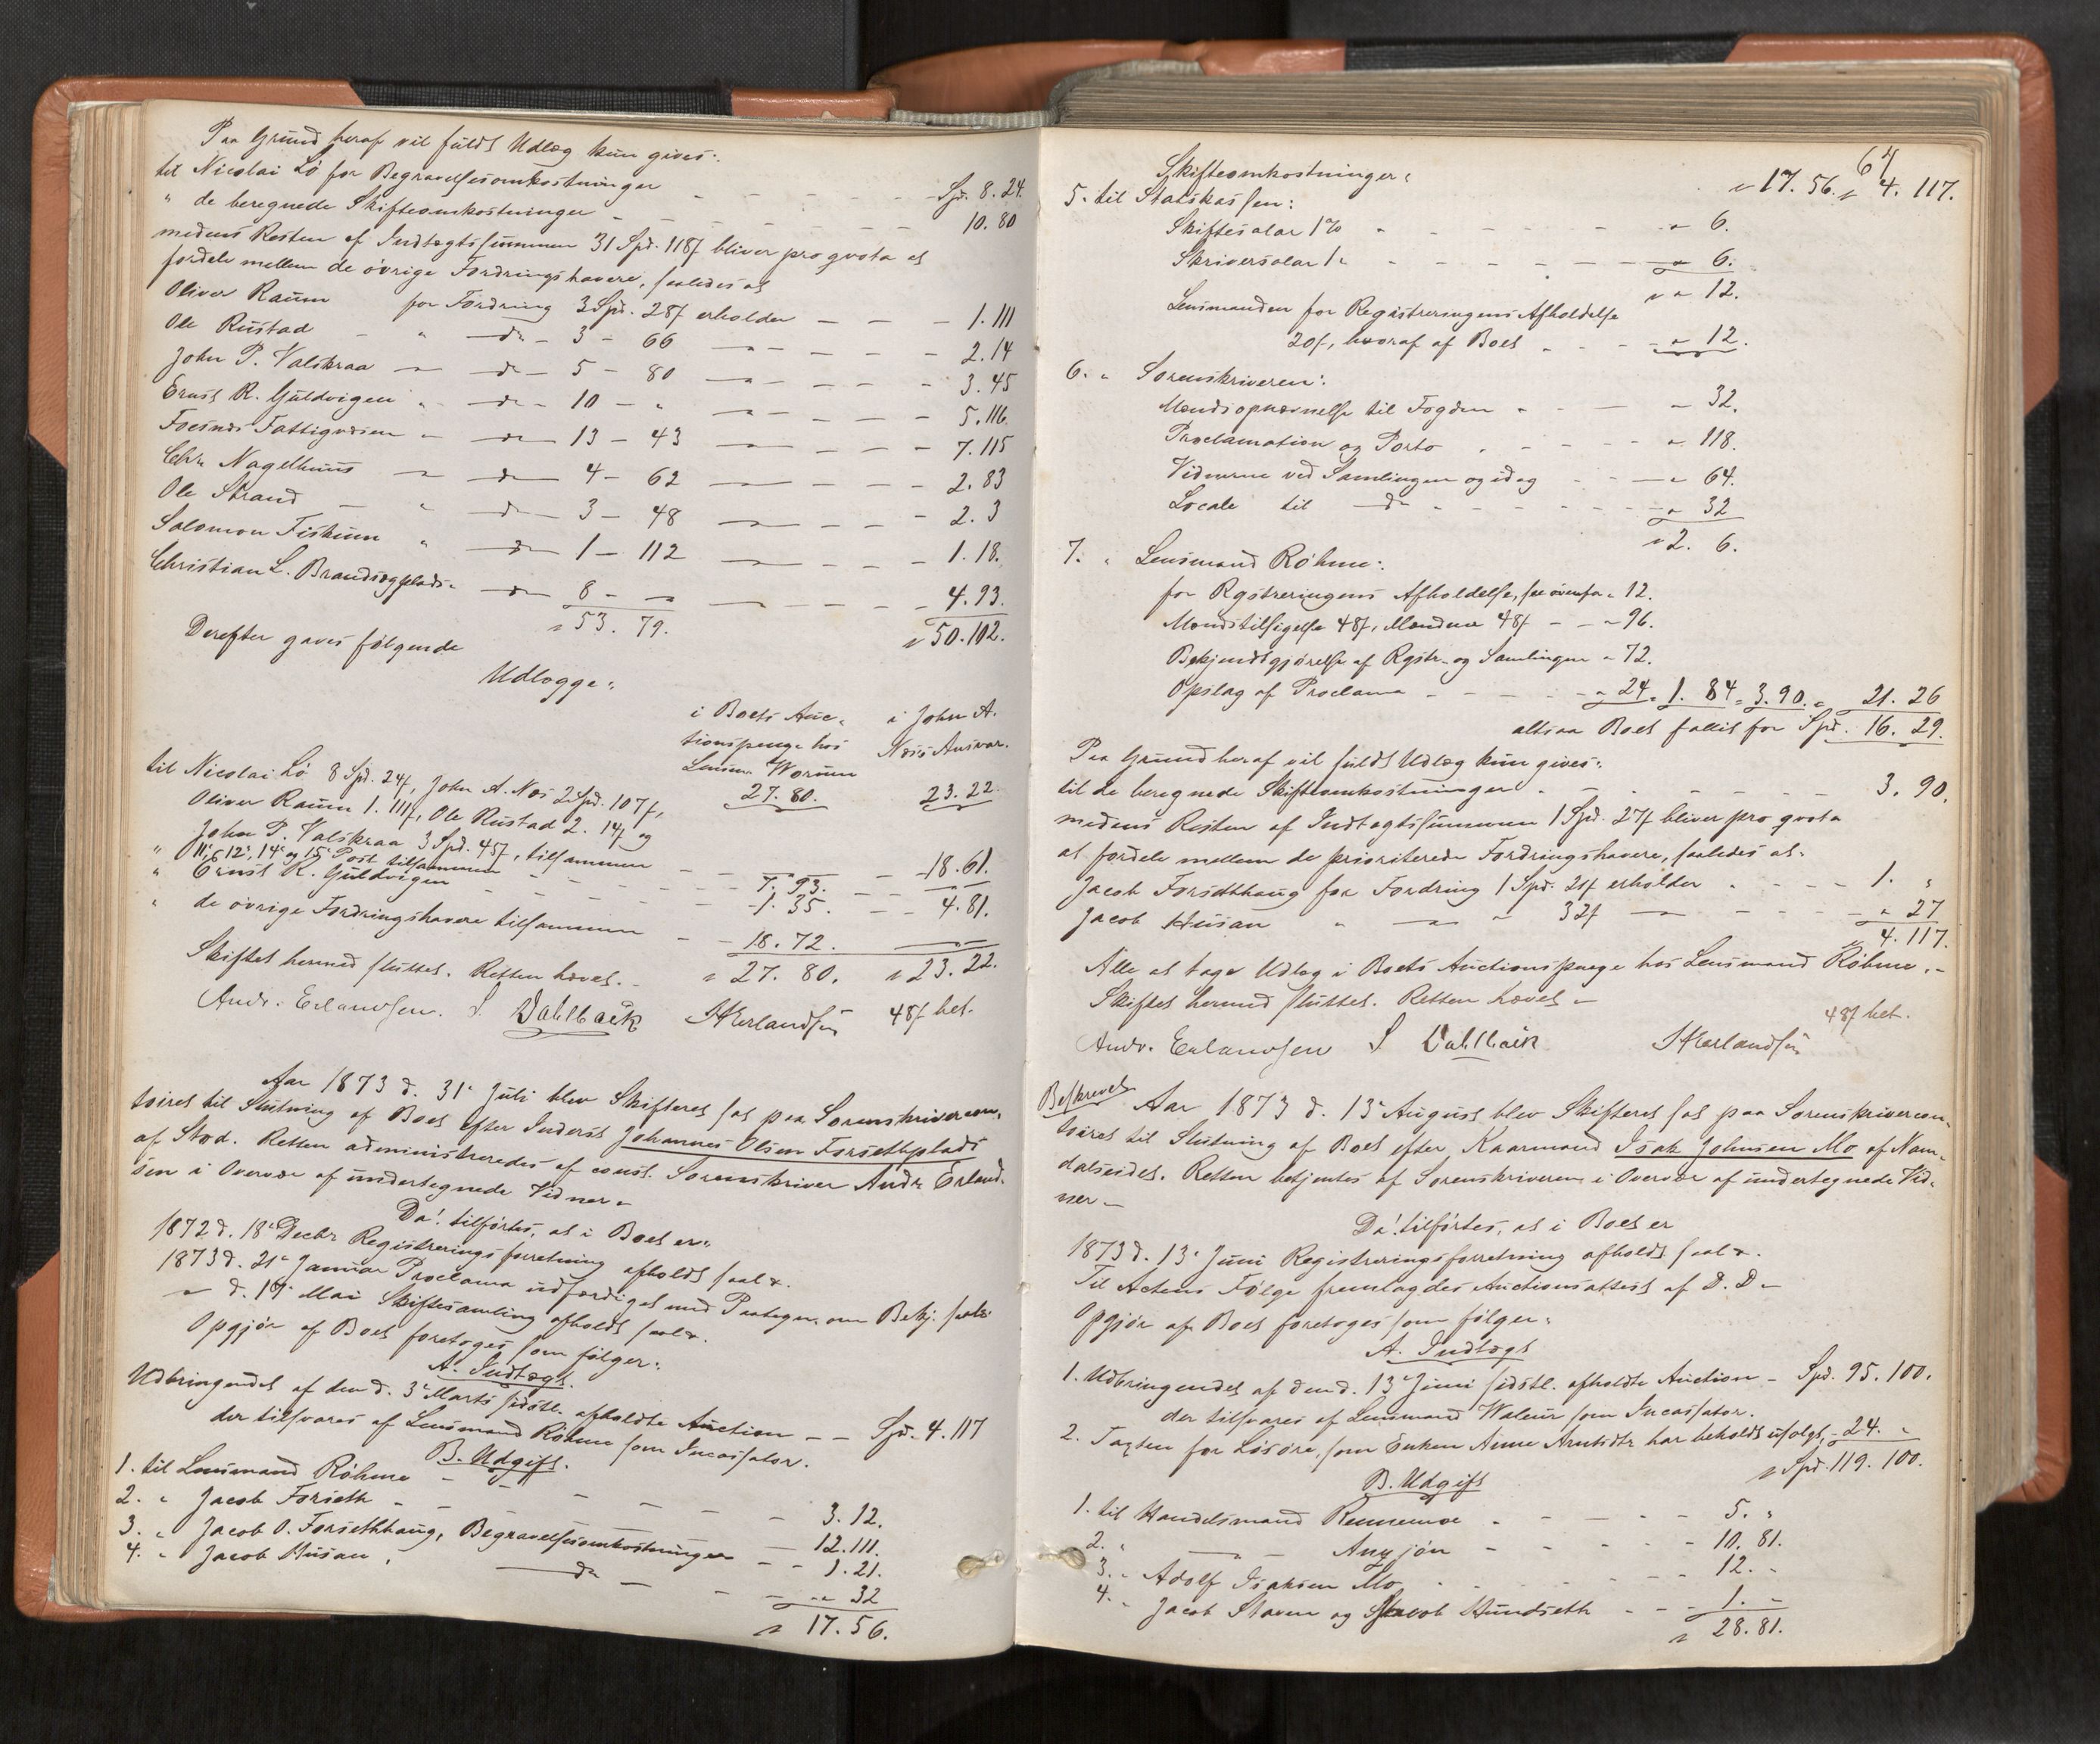 Paa Grund heraf vil fuldt Udlæg kun gives:
til Nicolai Lö for Begravelsesomkostninger - - - - Spd. 8. 24.
" de beregnede Skifteomkostninger - - - - - 10. 80
medens Resten af Indtægtssummen 31 Spd. 118 f bliver pro qvota at
fordele mellem de övrige Fordringshavere, saaledes at
Oliver Raum for Fordring 3 Spd. 28 f erholder - - - 1. 111
Ole Rustad - " - do - 3 - 66 - " - - - 2. 14
John P. Valskraa - " - do - 5 - 80 - " - - - 3. 45
Ernst R. Guldvigen " - do - 10 - " - " - - - 5. 116.
Foesnæs Fattigvæsen - do - 13 - 43 - - - 7. 115
Chr. Nagelhuus - " - do - 4 - 62 - - - 2. 83
Ole Strand - " - do - 3 - 48 - " - - - 2. 3
Salomon Fiskum " - do - 1 - 112 - " - - - 1. 18.
Christian L. Brandsegplads " - do - 8 - " - " - - - 4. 93.
" 53. 79. " 50. 102.
Derefter gaves følgende
Udlægge:
i Boets Auc- i John A.
tionspenge hos Næss Ansvar.
Lensm. Worum
27. 80. 23. 22.
til Nicolai Lö 8 Spd. 24 f, John A. Næs 2 Spd. 107 f,
Oliver Raum 1. 111 f, Ole Rustad 2. 14 f og
John P. Valskraa 3 Spd. 45 f, tilsammen - - - 18. 61.
" 11, 12, 14 og 15 Post tilsammen - - 7. 93. - -
" Ernst R. Guldvigen - - - - - 1. 35. - - 4. 81.
" de övrige Fordringshavere tilsammen - - 18. 72. - " -
" 27. 80. " 23. 22.
Skiftet hermed sluttet. Retten hævet. -
Andr. Erlandsen. S. Dahlback H Erlandsen 48 f bet.
Aar 1873 d. 31 Juli blev Skifteret sat paa Sorenskrivercon-
toiret til Slutning af Boet efter Inderst Johannes Olsen Forsethplads
af Stod. Retten administreredes af const. Sorenskriver Andr. Erland-
sen i Overvær af undertegnede Vidner. -
Da! tilførtes, at i Boet er:
1872 d. 18 Decbr Registreringsforretning afholdt saal.
1873 d. 21 Januar Proclama udfærdiget med Paategn. om Bekj. saal.
" d. 19 Mai Skiftesamling afholdt saal.
Opgjör af Boet foretoges som følger:
A. Indtægt.
Udbringendet af den d. 3 Marts sidstl. afholdte Auction - - Spd. 4. 117
der tilsvares af Lensmand Röhme som Incassator.
B. Udgift.
1. til Lensmand Röhme - - - - - 3. 12.
2. " Jacob Forseth - - - - - 12. 111.
3. " Jacob O. Forsethhaug, Begravelsesomkostninger - - 1. 21.
4. " Jacob Husan, - do - - - " 32
" 17. 56.
64
Skifteomkostninger: " 17. 56. " 4. 117.
5. til Statskassen:
Skiftesalar 1 % " - - - - " 6.
Skriversalar 1 " - - - - - " 6.
" " 12.
Lensmanden for Registreringens Afholdelse
20 f, hvoraf af Boet - - - " 12.
6. " Sorenskriveren:
Mændsopnævnelse til Fogden " - - " 32.
Proclamation og Porto - - - " 118.
Vidnerne ved Samlingen og idag - - " 64.
Locale til do - - - - " 32
" 2. 6.
7. " Lensmand Röhme:
for Rgstreringens Afholdelse, see ovenfor " 12.
Mændstilsigelse 48 f, Mændene 48 f - - " 96.
Bekjendtgjörelse af Rgstr. og Samlingen " 72.
Opslag af Proclama - - - - " 24. " 1. 84 " 3. 90. " 21. 26
altsaa Boet fallit for Spd. 16. 29.
Paa Grund heraf vil fuldt Udlæg kun gives:
til de beregnede Skifteomkostninger - - - - - 3. 90.
medens Resten af Indtægtssummen 1 Spd. 27 f bliver pro qvota
at fordele mellem de prioriterede Fordringshavere, saaledes at
Jacob Forsethhaug for Fordring 1 Spd. 21 f erholder - - - 1. "
Jacob Husan " - " 32 f - " - - - " 27
" 4. 117.
Alle at tage Udlæg i Boets Auctionspenge hos Lensmand Röhme. -
Skiftet hermed sluttet. Retten hævet. -
48 f bet.
Andr. Erlandsen S. Dahlback H Erlandsen
Beskrevet
Aar 1873 d. 13 August blev Skifteret sat paa Sorenskrivercon-
toiret til Slutning af Boet efter Kaarmand Isak Johnsen Mo af Nam-
dalseidet. Retten betjentes af Sorenskriveren i Overvær af undertegnede Vid-
ner -
Da! tilførtes, at i Boet er
1873 d. 13 Juni Registreringsforretning afholdt saal.
Til Actens Følge fremlagdes Auctionsattest af D. D -
Opgjör af Boet foretoges som følger:
A. Indtægt
1. Udbringendet af den d. 13 Juni sidstl. afholdte Auction - Spd. 95. 100.
der tilsvares af Lensmand Waleur som Incassator.
2. Taxten for Lösöre, som Enken Anne Arntsdtr har beholdt ifølge - 24. "
" Spd. 119. 100.
B. Udgift
1. til Handelsmand Rennemoe - - - - 5. "
2. " - " - Angjön - - - - 10. 81.
3. " Adolf Isaksen Mo - - - - 12. "
4. " Jacob Staven og Jacob Hundseth - - - 1. "
" 28. 81.